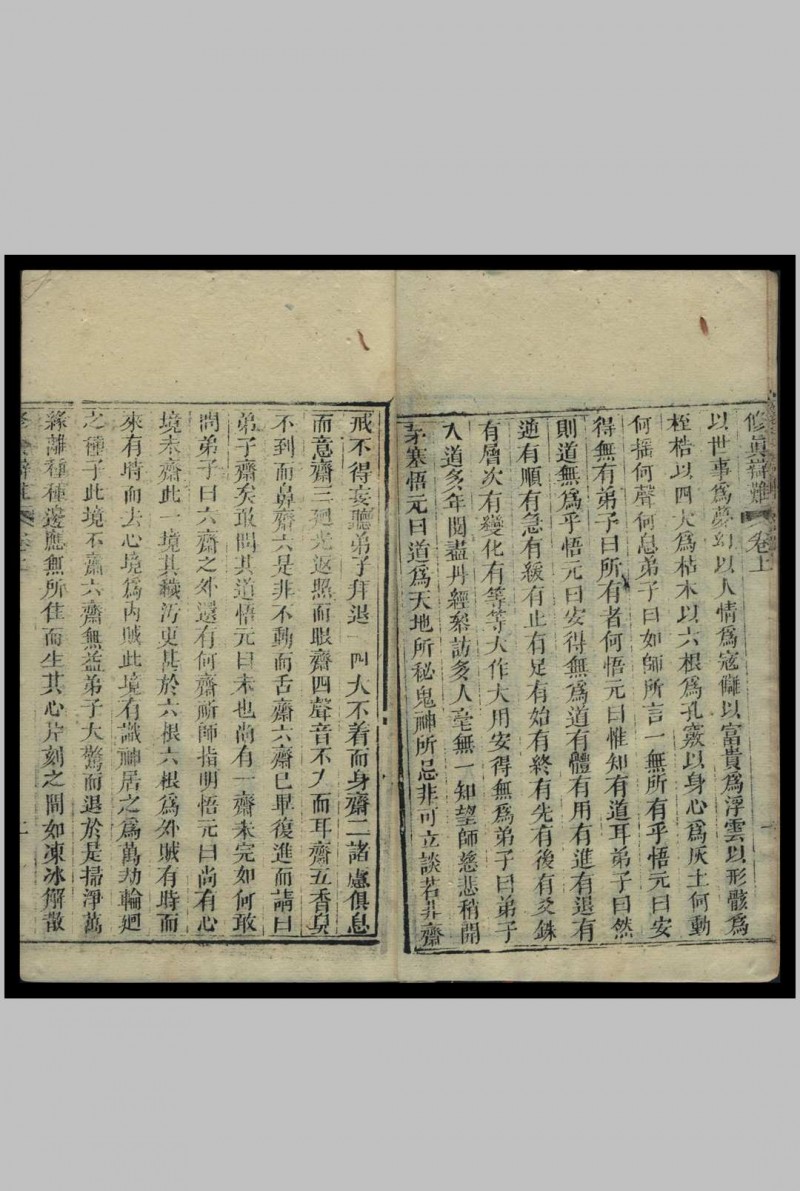 修真辯難 卷上
以世事為夢幻以人情為寇讎以富貴為浮雲以形骸為
桎梏以四大為枯木以六根為孔竅以身心為灰土何動
何搖何聲何息弟子曰如師所言一無所有乎悟元曰安
得無有弟子曰所有者何悟元曰惟知有道耳弟子曰然
則道無為乎悟元曰安得無為道有體有用有進有退有
逆有順有急有緩有止有足有始有終有先有後有爻銖
有層次有變化有等等大作大用安得無為弟子曰弟子
入道多年閱盡丹經叅訪多人毫無一知望師慈悲稍開
茅塞悟元曰道為天地所秘鬼神所忌非可立談若非齋
戒不得妄聽弟子拜退一四大不着而身齋二諸慮俱息
而意齋三廻光返照而眼齋四聲音不入而耳齋五香臭
不到而鼻齋六是非不動而舌齋六齋已畢復進而請曰
弟子齋矣敢問其道悟元曰未也尚有一齋未完如何敢
問弟子曰六齋之外還有何齋祈師指明悟元曰尚有心
境未齋此一境其穢污更甚於六根六根為外賊有時而
來有時而去心境為內賊此境有識神居之為萬劫輪廻
之種子此境不齋六齋無益弟子大驚而退於是掃淨萬
緣離種種邊應無所住而生其心片刻之間如凍冰解散